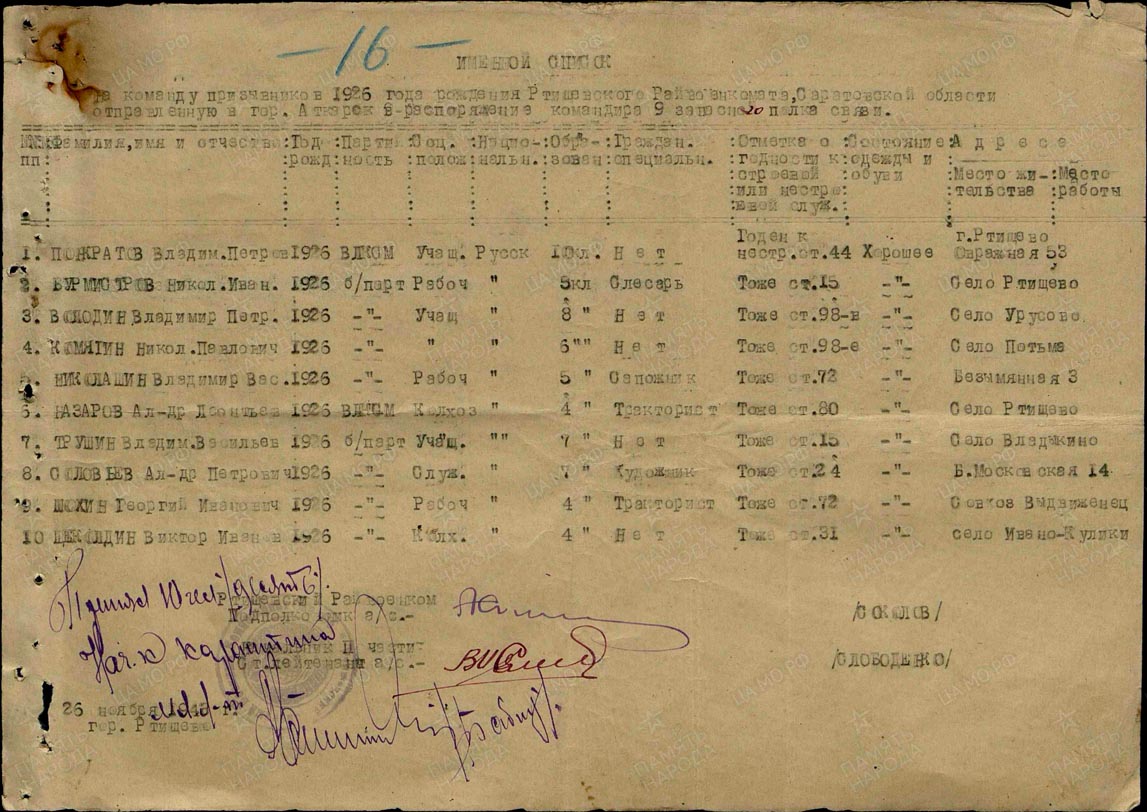 -16-
ИМЕННОЙ СПИСОК
на команду призывников 1926 года рождения Ртищевского Райвоенкомата, Саратовской области
отправленную в гор. Аткарск в-распоряжение командира 9 запасного полка связи.
№№ пп : Фамилия, имя и отчество : Год рожд : Партийность : Соц. полож : Национальн. : Образован : Граждан. специальн. : Отметка о годности к строевой или нестроевой служ. : Состояние одежды и обуви : Адресе Место жительства : Место работы
1. ПОНКРАТОВ Владим.Петров 1926 ВЛКСМ Учащ. Русск 10кл. Нет Годен к нестр.ст.44 Хорошее г.Ртищево Овражная 53
2. БУРМИСТРОВ Никол.Иван. 1926 б/парт Рабоч " 5кл Слесарь Тоже ст.15 -"- Село Ртищево
3. ВОЛОДИН Владимир Петр. 1926 -"- Учащ " 8 " Нет Тоже ст.98-в -"- Село Урусово
4. КОМЯГИН Никол.Павлович 1926 -"- " " 6"" Нет Тоже ст.98-е -"- Село Потьма
5. НИКОЛАШИН Владимир Вас. 1926 -"- Рабоч " 5 " Сапожник Тоже ст.72 -"- Безымянная 3
6. НАЗАРОВ Ал-др Леонтьев 1926 ВЛКСМ Колхоз " 4 " Тракторист Тоже ст.80 -"- Село Ртищево
7. ТРУШИН Владим.Васильев 1926 б/парт Учащ. "" 7 " Нет Тоже ст.15 -"- Село Владыкино
8. СОЛОВЬЕВ Ал-др Петрович 1926 -"- Служ. " 7 " Художник Тоже ст.24 -"- Б.Московская 14
9. ШОХИН Георгий Иванович 1926 -"- Рабоч " 4 " Тракторист Тоже ст.72 -"- Совхоз Выдвиженец
10 ЩЕКОЛДИН Виктор Иванов 1926 -"- Колх. " 4 " Нет Тоже ст.31 -"- село Ивано-Кулики
Принял 10 чел /десять/
Ртищевский Райвоенком
Подполковник а/с.- /СОКОЛОВ/
Нач.к карантина
Начальник II части
Ст.лейтенант а/с.- /СЛОБОДЕНКО/
26 ноября 1943 г.
гор. Ртищево